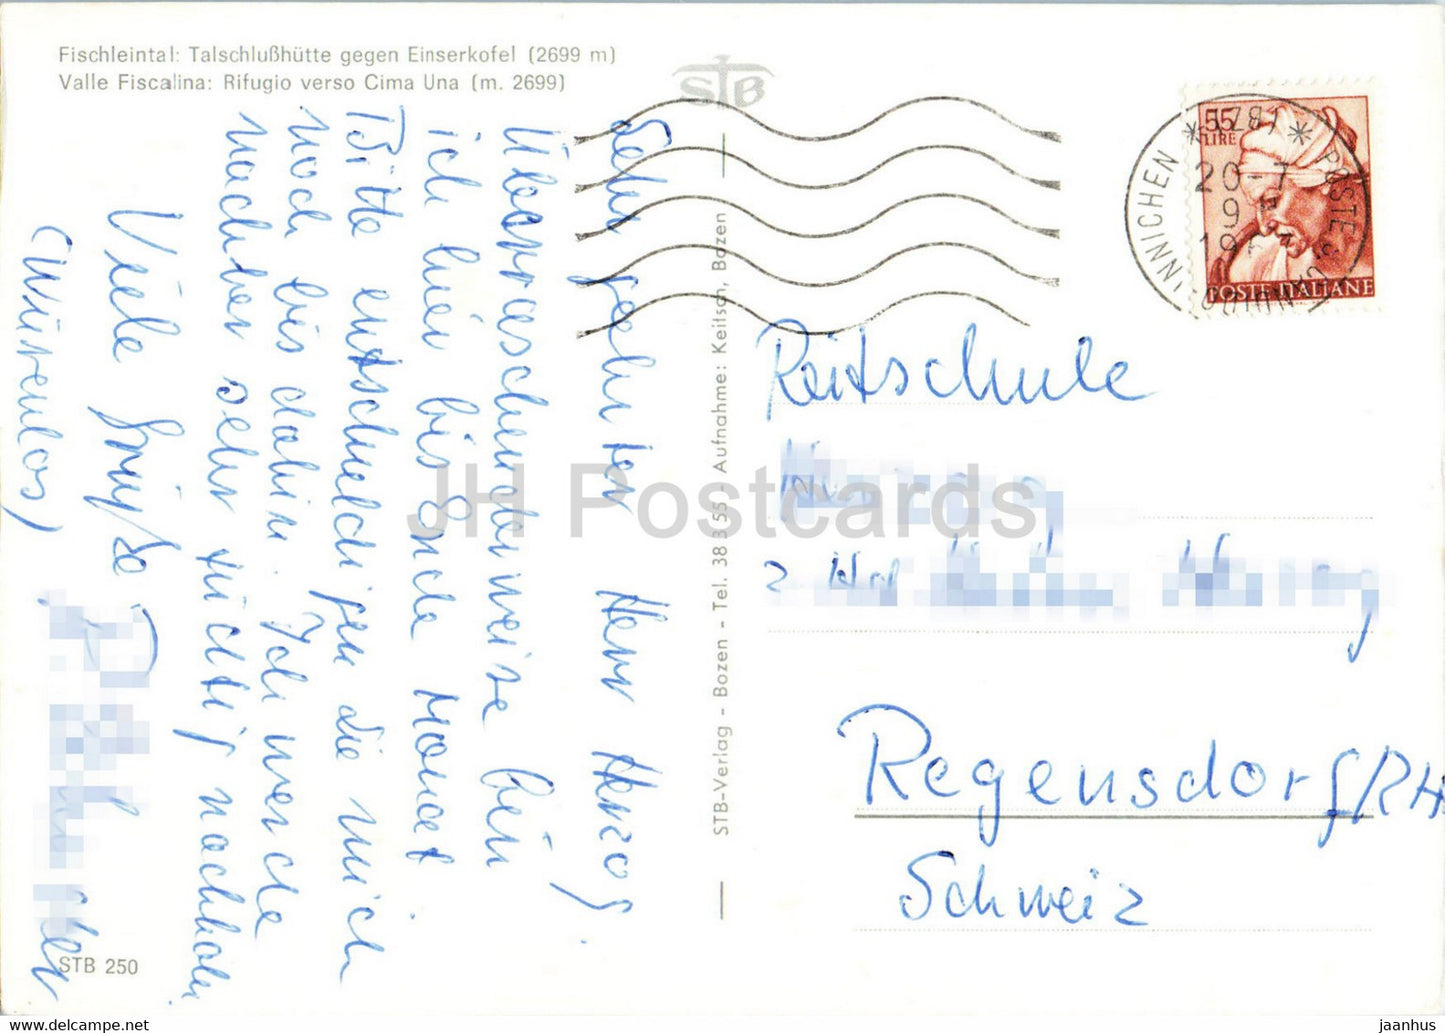 Fischleintal: Talschlußhütte gegen Einserkofel (2699 m)
Valle Fiscalina: Rifugio verso Cima Una (m. 2699)
STB
55
LIRE
POSTE ITALIANE
INNICHEN * * POSTE
20-7
9
19
Sehr geehrter Herr Herzog.
Überraschenderweise bin
ich hier bis Ende Monat
Bitte entschuldigen die mich
noch bis dahin. Ich werde
nachher sehr tüchtig nachholen
Viele Grüße
(Würenlos)
STB-Verlag - Bozen - Tel. 38 3 55 - Aufnahme: Keitsch, Bozen
Reitschule
Regensdorf/ZH
Schweiz
STB 250
JH Postcards
jaanhus